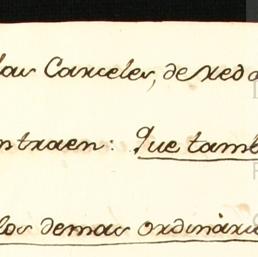 las Carceles, de red a
ntraen: Que tamb
los demas ordinari